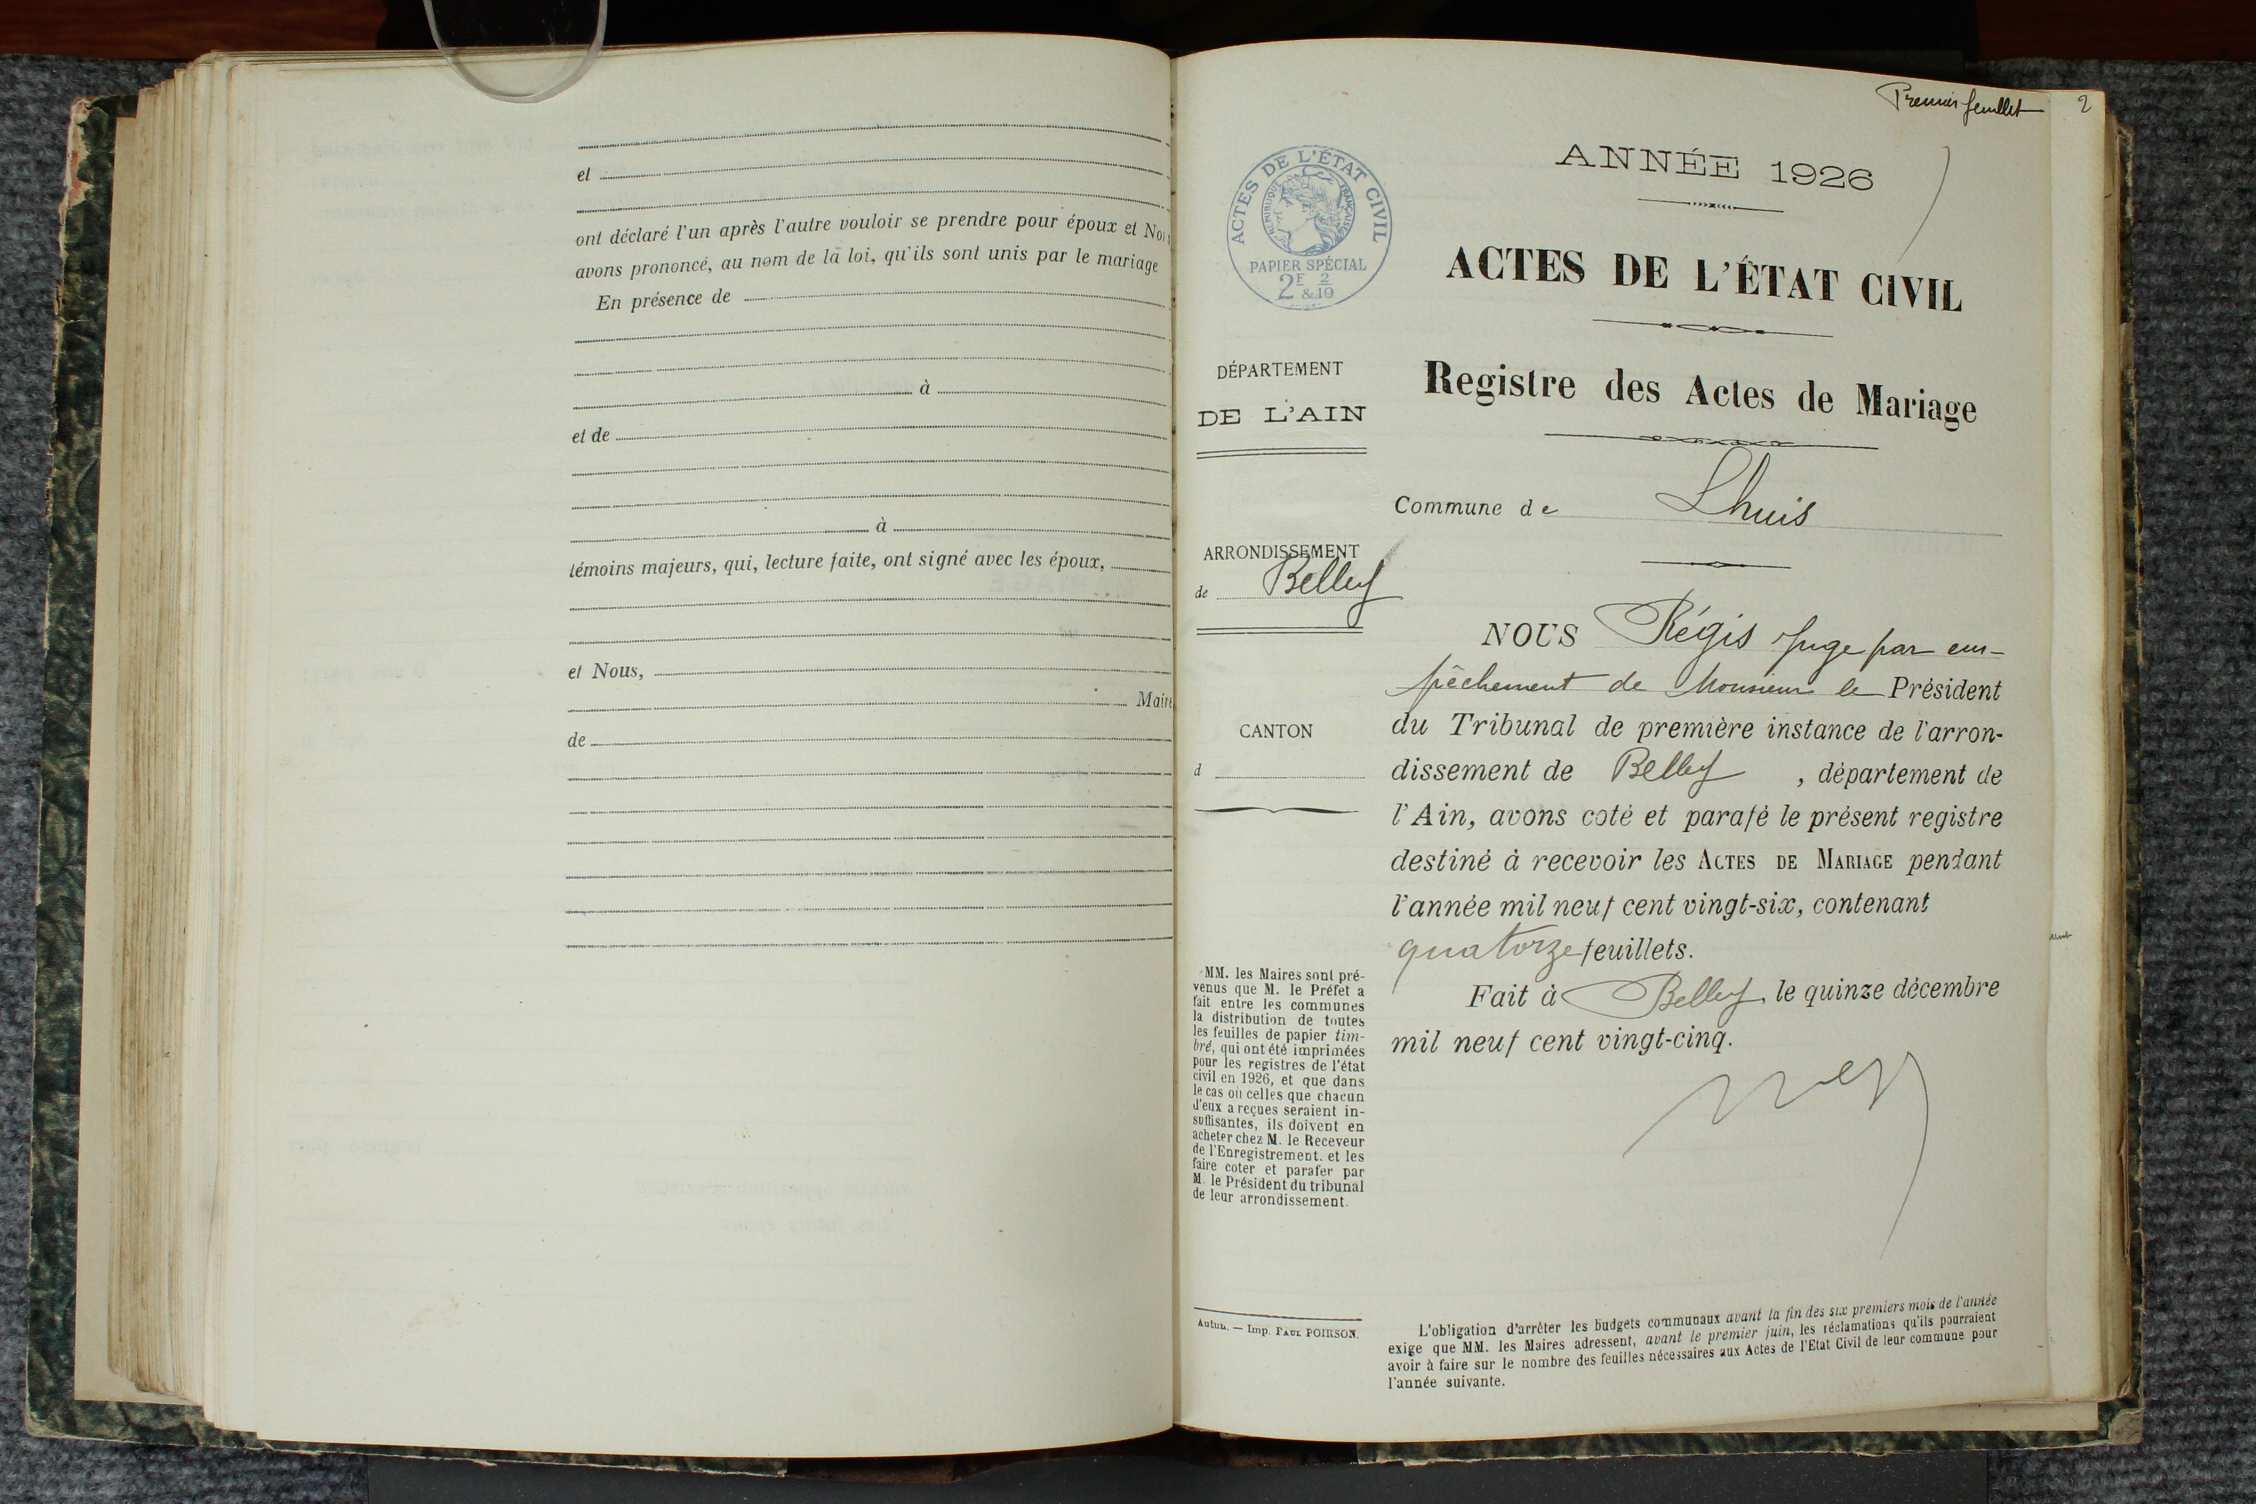 et
ont déclaré l'un après l'autre vouloir se prendre pour époux et Nous
avons prononcé, au nom de la loi, qu'ils sont unis par le mariage
En présence de
à
et de
à
témoins majeurs, qui, lecture faite, ont signé avec les époux,
et Nous,
Maire
de
Premier feuillet
2
ACTES DE L'ÉTAT CIVIL
RÉPUBLIQUE FRANÇAISE
PAPIER SPÉCIAL
2F & 2/10
DÉPARTEMENT
DE L'AIN
ARRONDISSEMENT
de Belley
CANTON
d
MM. les Maires sont pré-
venus que M. le Préfet a
fait entre les communes
la distribution de toutes
les feuilles de papier tim-
bré, qui ont été imprimées
pour les registres de l'état
civil en 1926, et que dans
le cas où celles que chacun
d'eux a reçues seraient in-
suffisantes, ils doivent en
acheter chez M. le Receveur
de l'Enregistrement. et les
faire coter et parafer par
M. le Président du tribunal
de leur arrondissement.
Autun. — Imp. PAUL POIRSON.
ANNÉE 1926
ACTES DE L'ÉTAT CIVIL
Registre des Actes de Mariage
Commune de Lhuis
NOUS Régis Juge par em-
pêchement de Monsieur le Président
du Tribunal de première instance de l'arron-
dissement de Belley, département de
l'Ain, avons coté et parafé le présent registre
destiné à recevoir les ACTES DE MARIAGE pendant
l'année mil neuf cent vingt-six, contenant
quatorze feuillets.
Fait à Belley, le quinze décembre
mil neuf cent vingt-cinq.
L'obligation d'arrêter les budgets communaux avant la fin des six premiers mois de l'année
exige que MM. les Maires adressent, avant le premier juin, les réclamations qu'ils pourraient
avoir à faire sur le nombre des feuilles nécessaires aux Actes de l'Etat Civil de leur commune pour
l'année suivante.